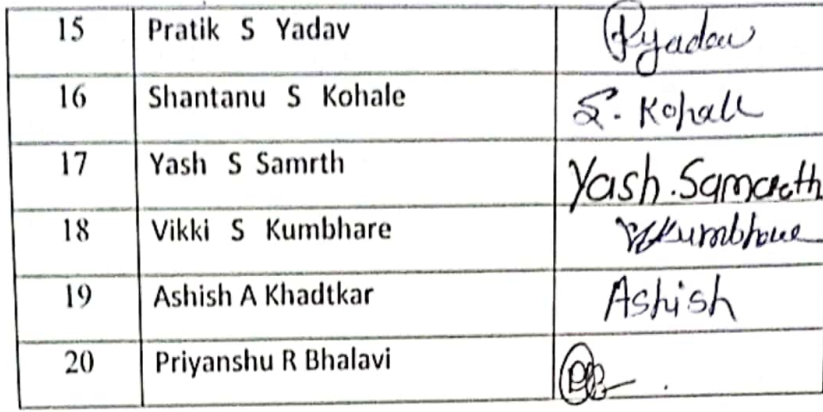 15 Pratik S Yadav Pyadav
16 Shantanu S Kohale S. Kohale
17 Yash S Samrth Yash.Samarth
18 Vikki S Kumbhare VKumbhare
19 Ashish A Khadtkar Ashish
20 Priyanshu R Bhalavi